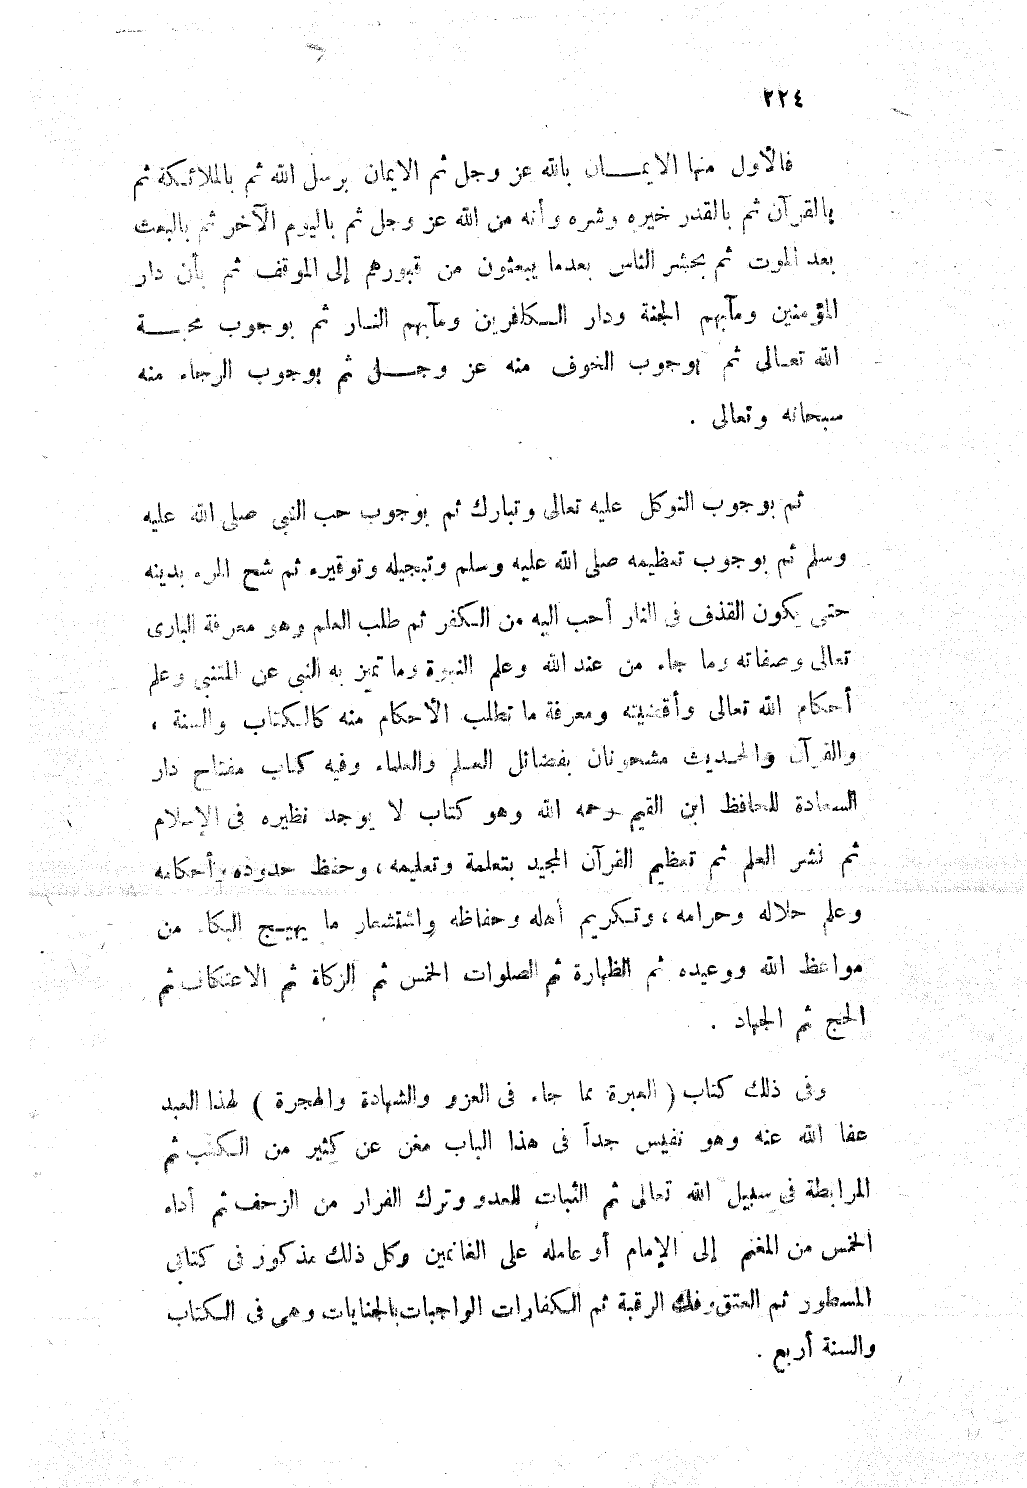 ٢٢٤
فالأول منها الايمـــان بالله عز وجل ثم الايمان برسل الله ثم بالملائكة ثم
بالقرآن ثم بالقدر خيره وشره وأنه من الله عز وجل ثم باليوم الآخر ثم بالبعث
بعد الموت ثم بحشر الناس بعدما يبعثون من قبورهم إلى الموقف ثم بأن دار
المؤمنين ومآبهم الجنة ودار الكافرين ومآبهم النار ثم بوجوب محبـــة
الله تعالى ثم بوجوب الخوف منه عز وجـــل ثم بوجوب الرجاء منه
سبحانه وتعالى .
ثم بوجوب التوكل عليه تعالى وتبارك ثم بوجوب حب النبي صلى الله عليه
وسلم ثم بوجوب تعظيمه صلى الله عليه وسلم وتبجيله وتوقيره ثم شح المرء بدينه
حتى يكون القذف فى النار أحب اليه من الكفر ثم طلب العلم وهو معرفة البارى
تعالى وصفاته وما جاء من عند الله وعلم النبوة وما تميز به النبى عن المتنبي وعلم
أحكام الله تعالى وأقضيته ومعرفة ما تطلب الأحكام منه كالكتاب والسنة ،
والقرآن والحديث مشحونان بفضائل العلم والعلماء وفيه كتاب مفتاح دار
السعادة للحافظ ابن القيم رحمه الله وهو كتاب لا يوجد نظيره فى الإسلام
ثم نشر العلم ثم تعظيم القرآن المجيد بتعلمة وتعليمه ، وحفظ حدوده وأحكامه
وعلم حلاله وحرامه ، وتكريم أهله وحفاظه واشتشعار ما يهيج البكاء من
مواعظ الله ووعيده ثم الطهارة ثم الصلوات الخمس ثم الزكاة ثم الاعتكاف ثم
الحج ثم الجهاد .
وفى ذلك كتاب ( العبرة مما جاء فى الغزو والشهادة والهجرة ) لهذا العبد
عفا الله عنه وهو نفيس جداً فى هذا الباب مغن عن كثير من الكتب ثم
المرابطة فى سبيل الله تعالى ثم الثبات للعدو وترك الفرار من الزحف ثم أداء
الخمس من المغنم إلى الإمام أو عامله على الغانمين وكل ذلك مذكور فى كتابى
المسطور ثم العتق وفك الرقبة ثم الكفارات الواجبات بالجنايات وهى فى الكتاب
والسنة أربع .